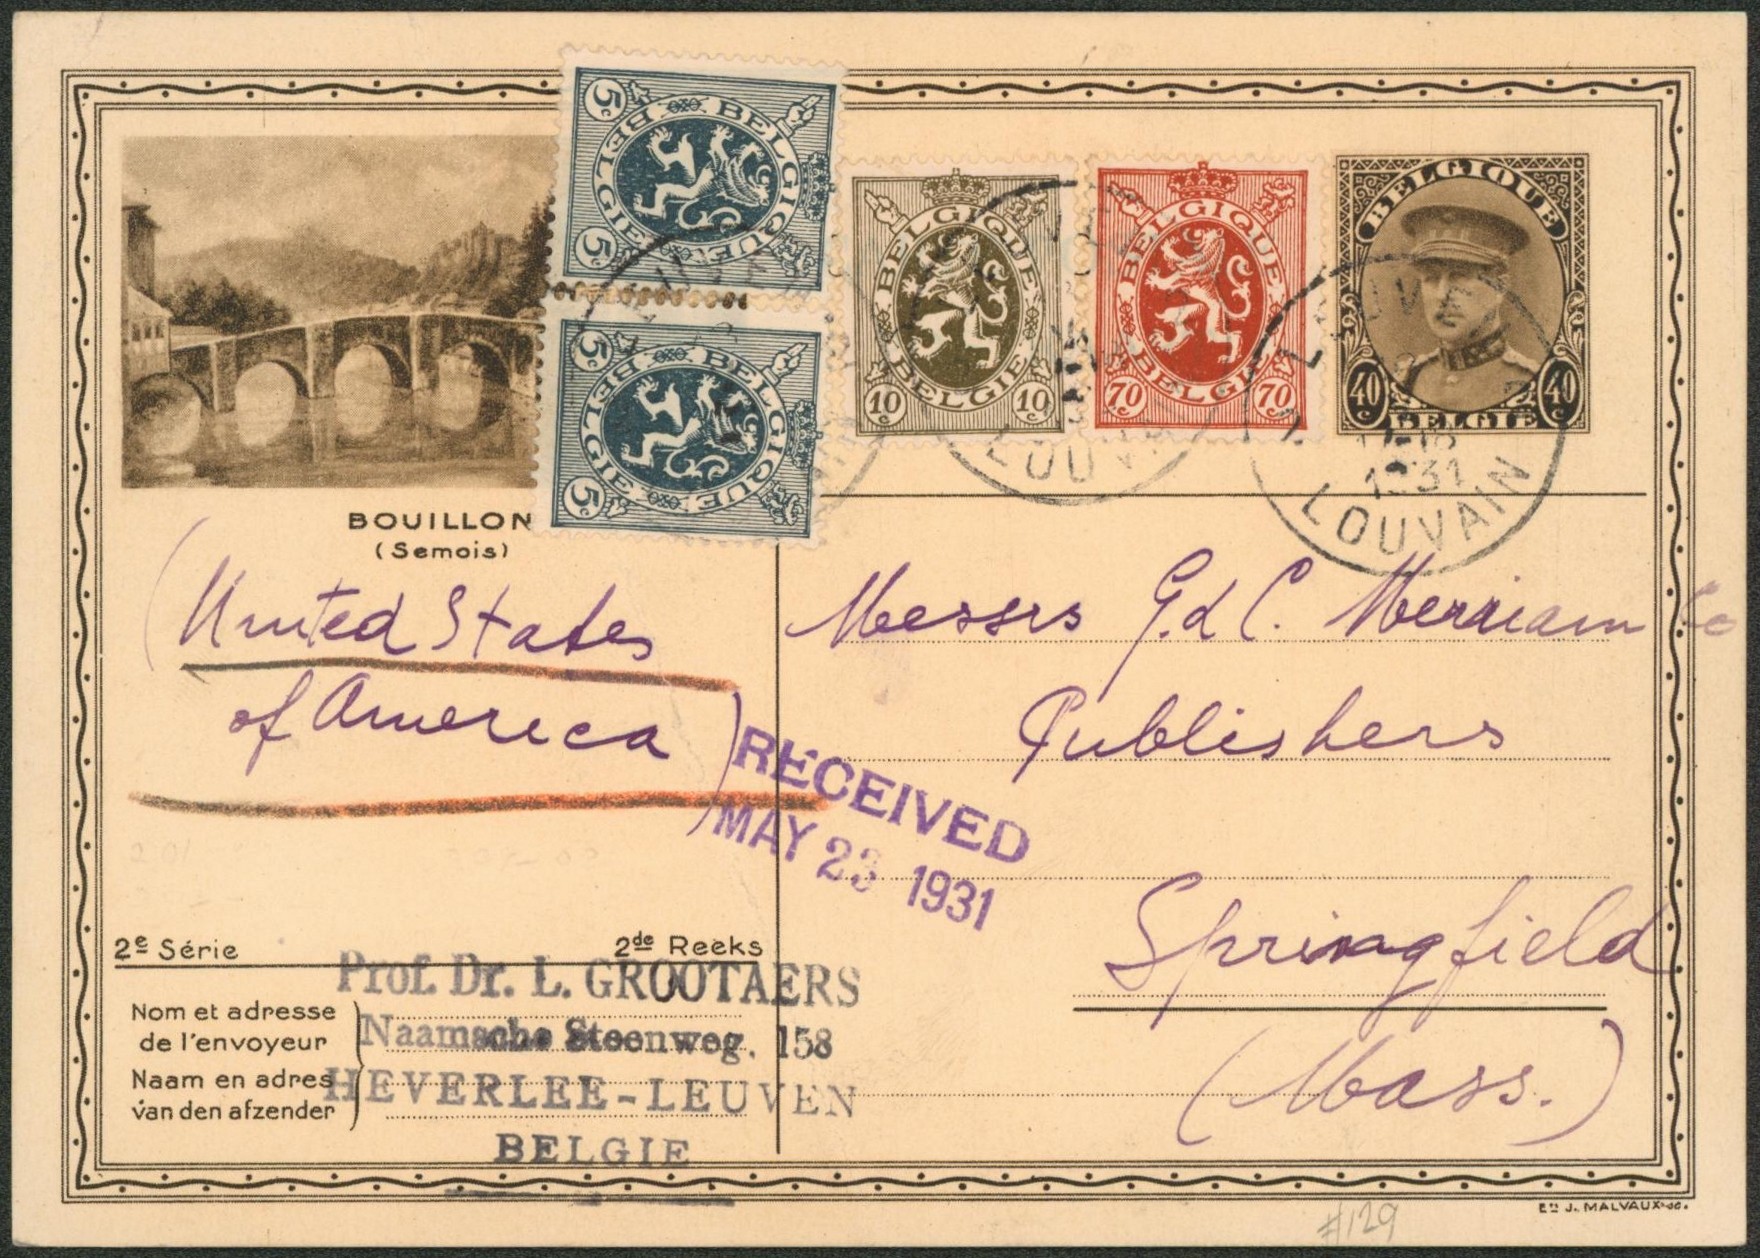 5c BELGIQUE
BELGIE 5c
5c BELGIQUE
BELGIE 5c
BELGIQUE
10c BELGIE 10c
BELGIQUE
70c BELGIE 70c
BELGIQUE
40c 40c
BELGIE
LOUVAIN
1931
LOUVAIN
BOUILLON
(Semois)
(United States
of America)
Messrs G. d C. Merriam Co
Publishers
Springfield
(Mass.)
RECEIVED
MAY 23 1931
2e Série 2de Reeks
Nom et adresse
de l'envoyeur
Naam en adres
van den afzender
Prof. Dr. L. GROOTAERS
Naamsche Steenweg, 158
HEVERLEE-LEUVEN
BELGIE
Ets J. MALVAUX sc.
#129